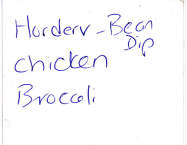 Horderv - Bean
Dip
chicken
Broccoli